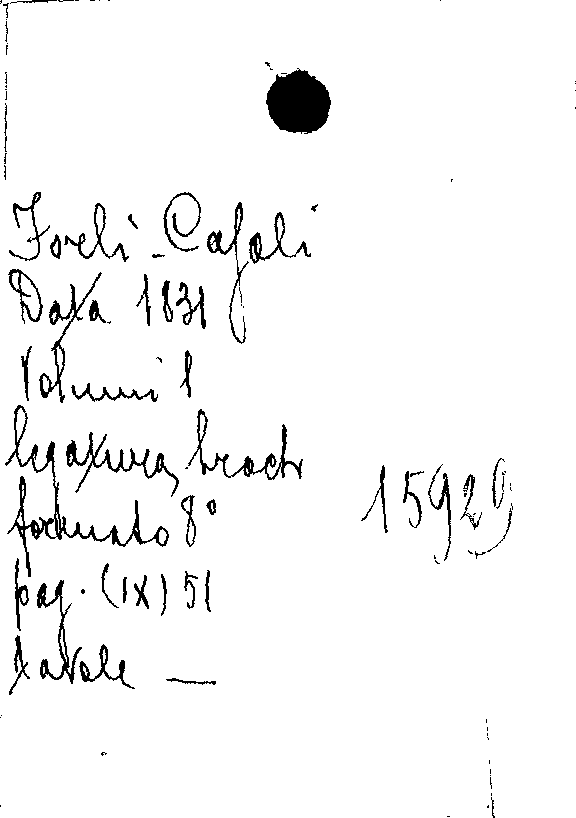 Forlì - Casali
Data 1831
Volumi 1
legatura, broch
formato 8°
pag. (IX) 51
tavole —
15929